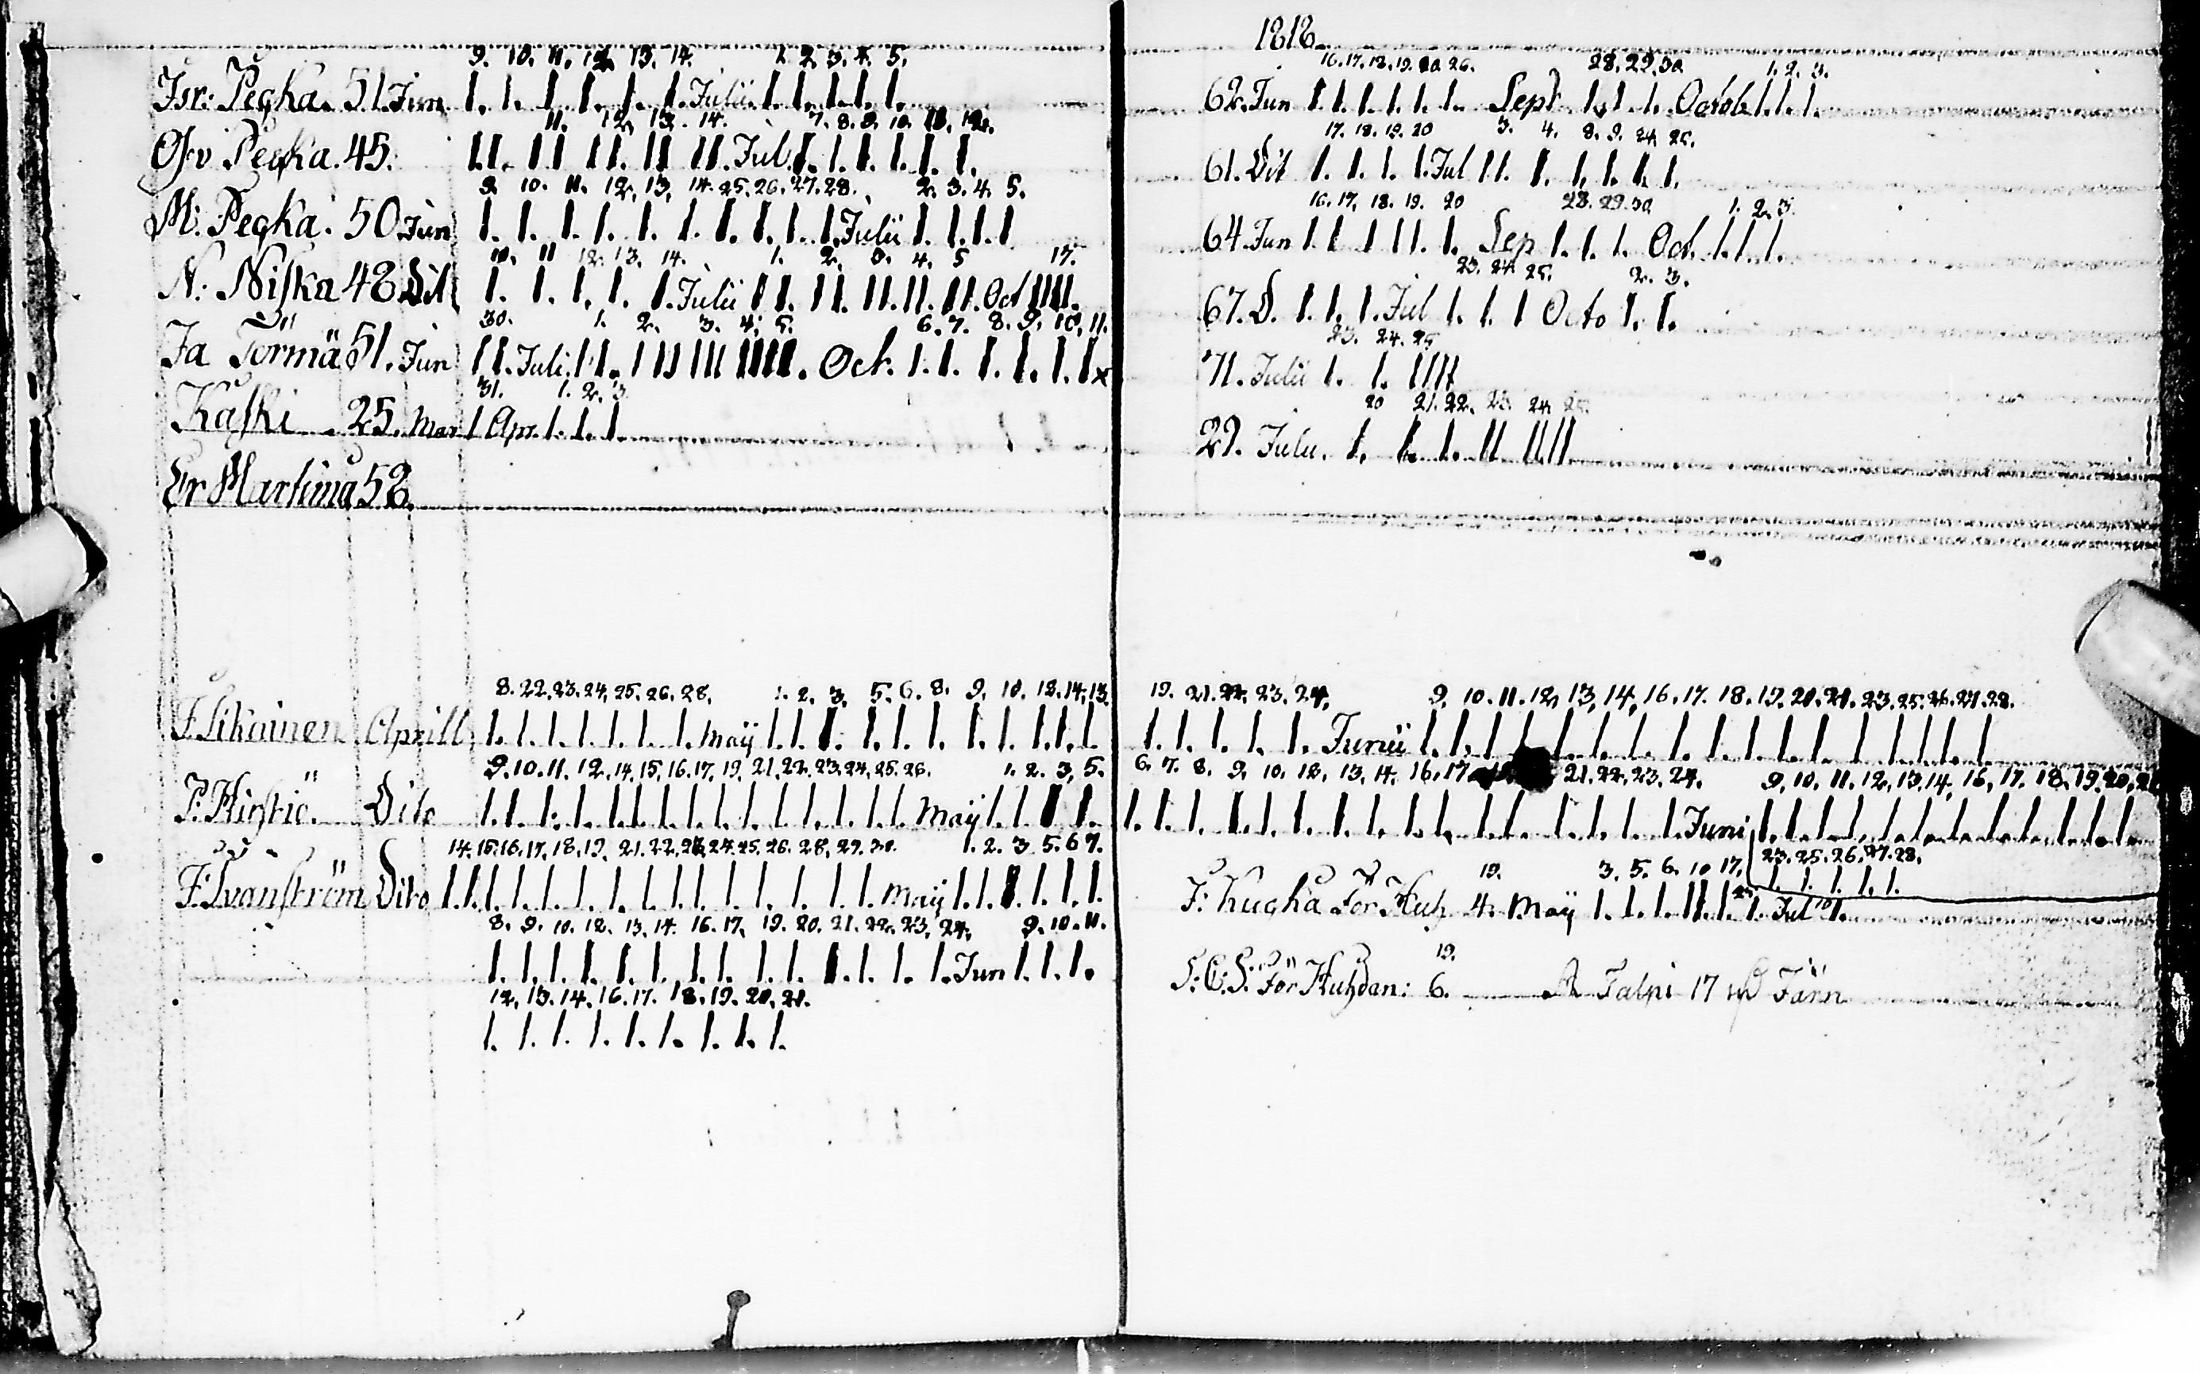 9. 10. 11. 12. 13. 14. 1. 2. 3. 4. 5.
Isr: Pegka. 51. Jun Julii
11. 12. 13. 14. 7. 8. 9. 10. 11. 12.
Pegka. 45. Jul
9. 10. 11. 12. 13. 14. 25. 26. 27. 28. 2. 3. 4. 5.
M: Pegka. 50 Jun Julii
10. 11 12. 13. 14. 1. 2. 3. 4. 5 17.
N: Niska 48 Dit Julii Oct
30. 1. 2. 3. 4. 5. 6. 7. 8. 9. 10. 11.
Ja Törmä 51. Jun Juli Oct. x
31. 1. 2. 3
Kaski 25. Mar Apr.
Er Martima 52.
8. 22. 23. 24. 25. 26. 28. 1. 2. 3. 5. 6. 8. 9. 10. 12. 14. 13.
Aprill Maÿ
9. 10. 11. 12. 14. 15. 16. 17. 19. 21. 22. 23. 24. 25. 26. 1. 2. 3. 5.
Dito Maÿ
14. 15. 16. 17. 18. 19. 21. 22. 23. 24. 25. 26. 28. 29. 30. 1. 2. 3 5. 6 7.
Dito Maÿ
8. 9. 10. 12. 13. 14. 16. 17. 19. 20. 21. 22. 23. 24. 9. 10. 11.
Jun
12. 13. 14. 16. 17. 18. 19. 20. 21.
1818
16. 17. 18. 19. 20 26. 28. 29. 30 1. 2. 3.
62. Jun Sept Octob
17. 18. 19. 20 3. 4. 8. 9. 24 25.
61. Dit Jul
16. 17. 18. 19. 20 28. 29. 30 1. 2. 3.
64. Jun Sep Oct.
23. 24. 25. 2. 3.
67. D. Jul Octo
23. 24. 25
71. Julii
20 21. 22. 23. 24. 25.
29. Julii.
19. 21. 22. 23. 24. 9. 10. 11. 12. 13. 14. 16. 17. 18. 19. 20. 21. 23. 25. 26. 27. 28.
Junii
6. 7. 8. 9. 10. 12. 13. 14. 16. 17 21. 22. 23. 24. 9. 10. 11. 12. 13. 14. 16. 17. 18. 19. 20.
Juni
19. 3. 5. 6. 10 17. 23. 25. 26. 27. 28.
För 4. Maÿ Jul
19.
För 6. Talpi 17 Järn